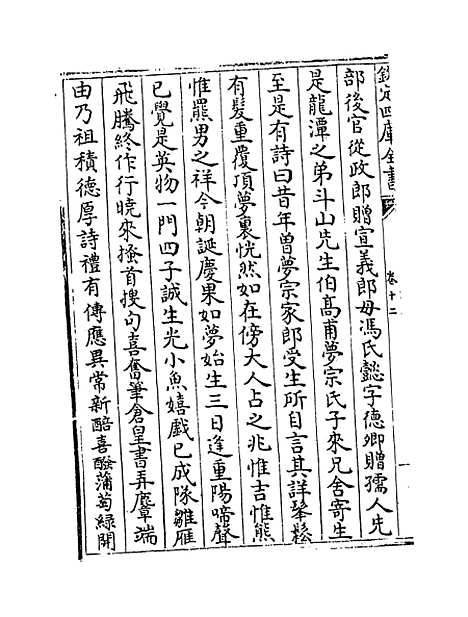 欽定四庫全書
卷十二
部後官從政郎贈宣義郎母馮氏懿字德卿贈孺人先
是龍潭之弟斗山先生伯高甫夢宗氏子來兄舍寄生
至是有詩曰昔年曽夢宗家郎受生所自言其詳髼鬆
有髮重覆頂夢裏恍然如在傍大人占之兆惟吉惟熊
惟羆男之祥今朝誕慶果如夢始生三日逢重陽啼聲
已覺是英物一門四子誠生光小魚嬉戲已成隊雛雁
飛騰終作行曉來搔首搜句喜奮筆倉皇書弄麞端
由乃祖積德厚詩禮有傳應異常新醅喜醱蒲萄緑開